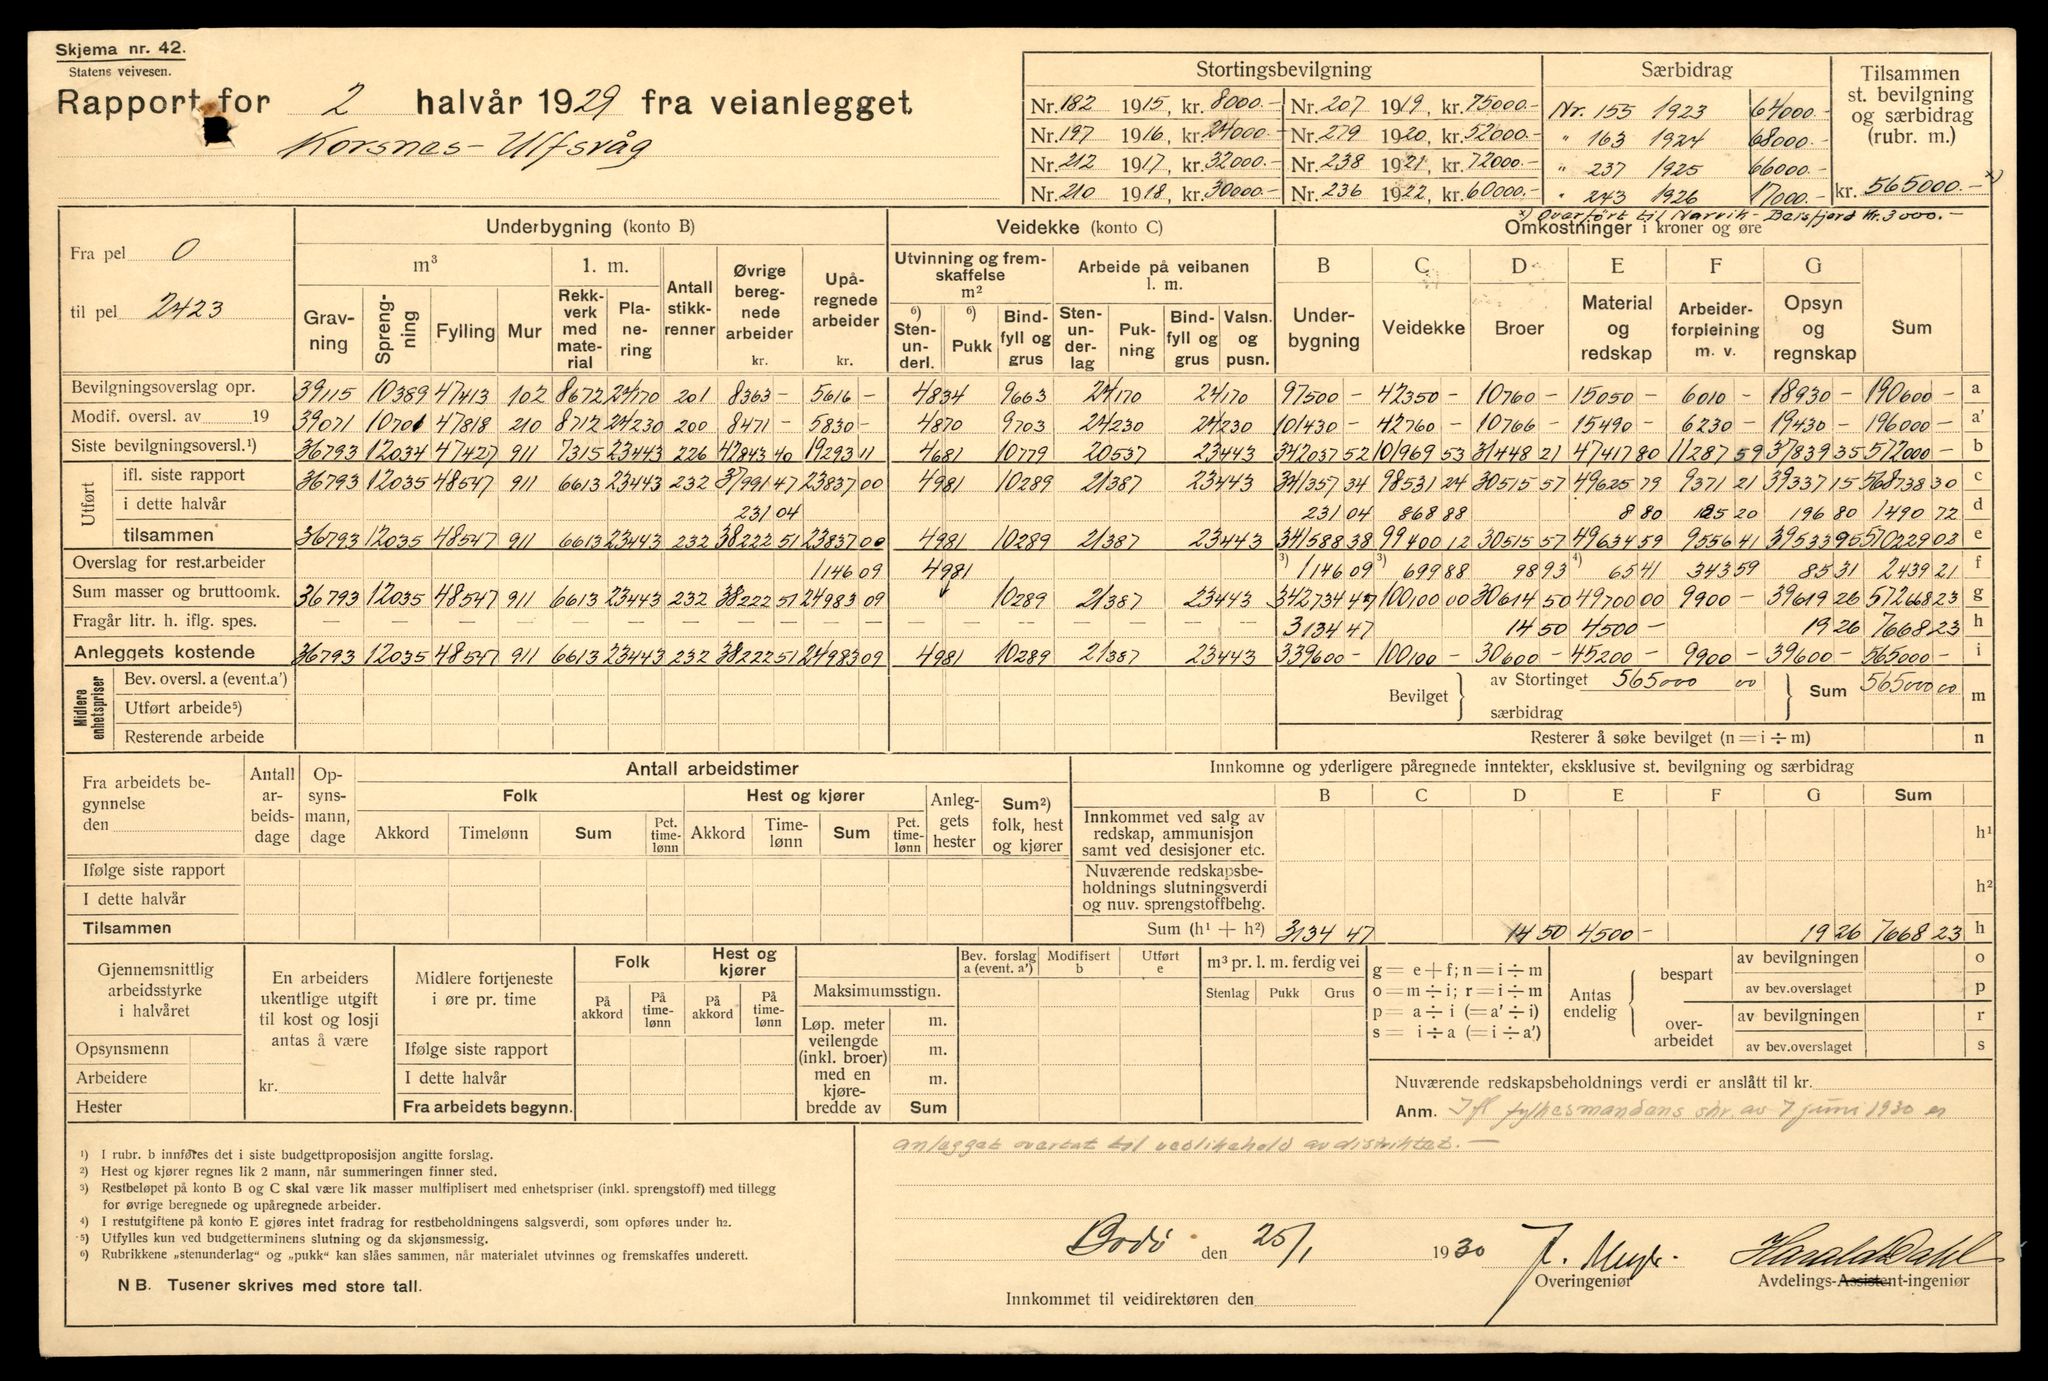 Skjema nr. 42.
Statens veivesen.
Rapport for 2 halvår 1929 fra veianlegget
Korsnes - Ulfsvåg
Stortingsbevilgning
Nr. 182 1915, kr. 8000.- Nr. 207 1919, kr. 75000.-
Nr. 197 1916, kr. 24000.- Nr. 279 1920, kr. 52000.-
Nr. 212 1917, kr. 32000.- Nr. 238 1921, kr. 72000.-
Nr. 210 1918, kr. 30000.- Nr. 236 1922, kr. 60000.-
Særbidrag
Nr. 155 1923 64000.-
" 163 1924 68000.-
" 237 1925 66000.-
" 243 1926 17000.-
Tilsammen
st. bevilgning
og særbidrag
(rubr. m.)
kr. 565000.- x)
x) Overført til Narvik - Beisfjord kr. 3000.-
Fra pel 0
til pel 2423
Underbygning (konto B)
m³ l. m.
Gravning Sprengning Fylling Mur
Rekkverk med material
Planering
Antall stikkrenner
Øvrige beregnede arbeider kr.
Upåregnede arbeider kr.
Veidekke (konto C)
Utvinning og fremskaffelse m²
⁶) Stenunderl. ⁶) Pukk Bindfyll og grus
Arbeide på veibanen l. m.
Stenunderlag Pukning Bindfyll og grus Valsn. og pusn.
Omkostninger i kroner og øre
B C D E F G
Underbygning Veidekke Broer Material og redskap Arbeiderforpleining m. v. Opsyn og regnskap Sum
Bevilgningsoverslag opr. 39115 10389 47413 102 8672 24170 201 8363 - 5616 - 4834 9663 24170 24170 97500 - 42350 - 10760 - 15050 - 6010 - 18930 - 190600 - a
Modif. oversl. av 19 39071 10701 47818 210 8712 24230 200 8471 - 5830 - 4870 9703 24230 24230 101430 - 42760 - 10766 - 15490 - 6230 - 19430 - 196000 - a'
Siste bevilgningsoversl.¹) 36793 12034 47427 911 7315 23443 226 42843 40 19293 11 4681 10779 20537 23443 342037 52 101969 53 31448 21 47417 80 11287 59 37839 35 572000 - b
Utført
ifl. siste rapport 36793 12035 48547 911 6613 23443 232 37991 47 23837 00 4981 10289 21387 23443 341357 34 98531 24 30515 57 49625 79 9371 21 39337 15 568738 30 c
i dette halvår 231 04 231 04 868 88 8 80 185 20 196 80 1490 72 d
tilsammen 36793 12035 48547 911 6613 23443 232 38222 51 23837 00 4981 10289 21387 23443 341588 38 99400 12 30515 57 49634 59 9556 41 39533 95 570229 02 e
Overslag for rest.arbeider 1146 09 4981 ³) 1146 09 ³) 699 88 98 93 ⁴) 65 41 343 59 85 31 2439 21 f
Sum masser og bruttoomk. 36793 12035 48547 911 6613 23443 232 38222 51 24983 09 10289 21387 23443 342734 47 100100 00 30614 50 49700 00 9900 - 39619 26 572668 23 g
Fragår litr. h. iflg. spes. 3134 47 14 50 4500 - 19 26 7668 23 h
Anleggets kostende 36793 12035 48547 911 6613 23443 232 38222 51 24983 09 4981 10289 21387 23443 339600 - 100100 - 30600 - 45200 - 9900 - 39600 - 565000 - i
Midlere enhetspriser
Bev. oversl. a (event. a')
Utført arbeide⁵)
Resterende arbeide
Bevilget av Stortinget 565000 00 Sum 565000 00 m
særbidrag
Resterer å søke bevilget (n = i ÷ m) n
Fra arbeidets begynnelse
den
Antall arbeidsdage
Opsynsmann, dage
Antall arbeidstimer
Folk Hest og kjører
Akkord Timelønn Sum Pct. timelønn Akkord Timelønn Sum Pct. timelønn
Anleggets hester
Sum²) folk, hest og kjører
Ifølge siste rapport
I dette halvår
Tilsammen
Innkomne og yderligere påregnede inntekter, eksklusive st. bevilgning og særbidrag
B C D E F G Sum
Innkommet ved salg av redskap, ammunisjon samt ved desisjoner etc. h¹
Nuværende redskapsbeholdnings slutningsverdi og nuv. sprengstoffbehg. h²
Sum (h¹ + h²) 3134 47 14 50 4500 - 19 26 7668 23 h
Gjennemsnittlig
arbeidsstyrke
i halvåret
Opsynsmenn
Arbeidere
Hester
En arbeiders
ukentlige utgift
til kost og losji
antas å være
kr.
Midlere fortjeneste
i øre pr. time
Folk Hest og kjører
På akkord På timelønn På akkord På timelønn
Ifølge siste rapport
I dette halvår
Fra arbeidets begynn.
Bev. forslag a (event. a') Modifisert b Utført e
Maksimumsstign.
Løp. meter veilengde (inkl. broer) med en kjørebredde av
m.
m.
m.
Sum
m³ pr. l. m. ferdig vei
Stenlag Pukk Grus
g = e + f; n = i ÷ m
o = m ÷ i; r = i ÷ m
p = a ÷ i (= a' ÷ i)
s = i ÷ a (= i ÷ a')
Antas endelig
bespart
av bevilgningen o
av bev.overslaget p
overarbeidet
av bevilgningen r
av bev.overslaget s
Nuværende redskapsbeholdnings verdi er anslått til kr.
Anm. Ifl fylkesmandens skr. av 7 juni 1930 er
anlegget overtat til vedlikehold av distriktet. -
¹) I rubr. b innføres det i siste budgettproposisjon angitte forslag.
²) Hest og kjører regnes lik 2 mann, når summeringen finner sted.
³) Restbeløpet på konto B og C skal være lik masser multiplisert med enhetspriser (inkl. sprengstoff) med tillegg
for øvrige beregnede og upåregnede arbeider.
⁴) I restutgiftene på konto E gjøres intet fradrag for restbeholdningens salgsverdi, som opføres under h2.
⁵) Utfylles kun ved budgetterminens slutning og da skjønsmessig.
⁶) Rubrikkene „stenunderlag" og „pukk" kan slåes sammen, når materialet utvinnes og fremskaffes underett.
NB. Tusener skrives med store tall.
Bodø den 25/1 1930
Overingeniør
Harald Dahl
Avdelings-Assistent-ingeniør
Innkommet til veidirektøren den